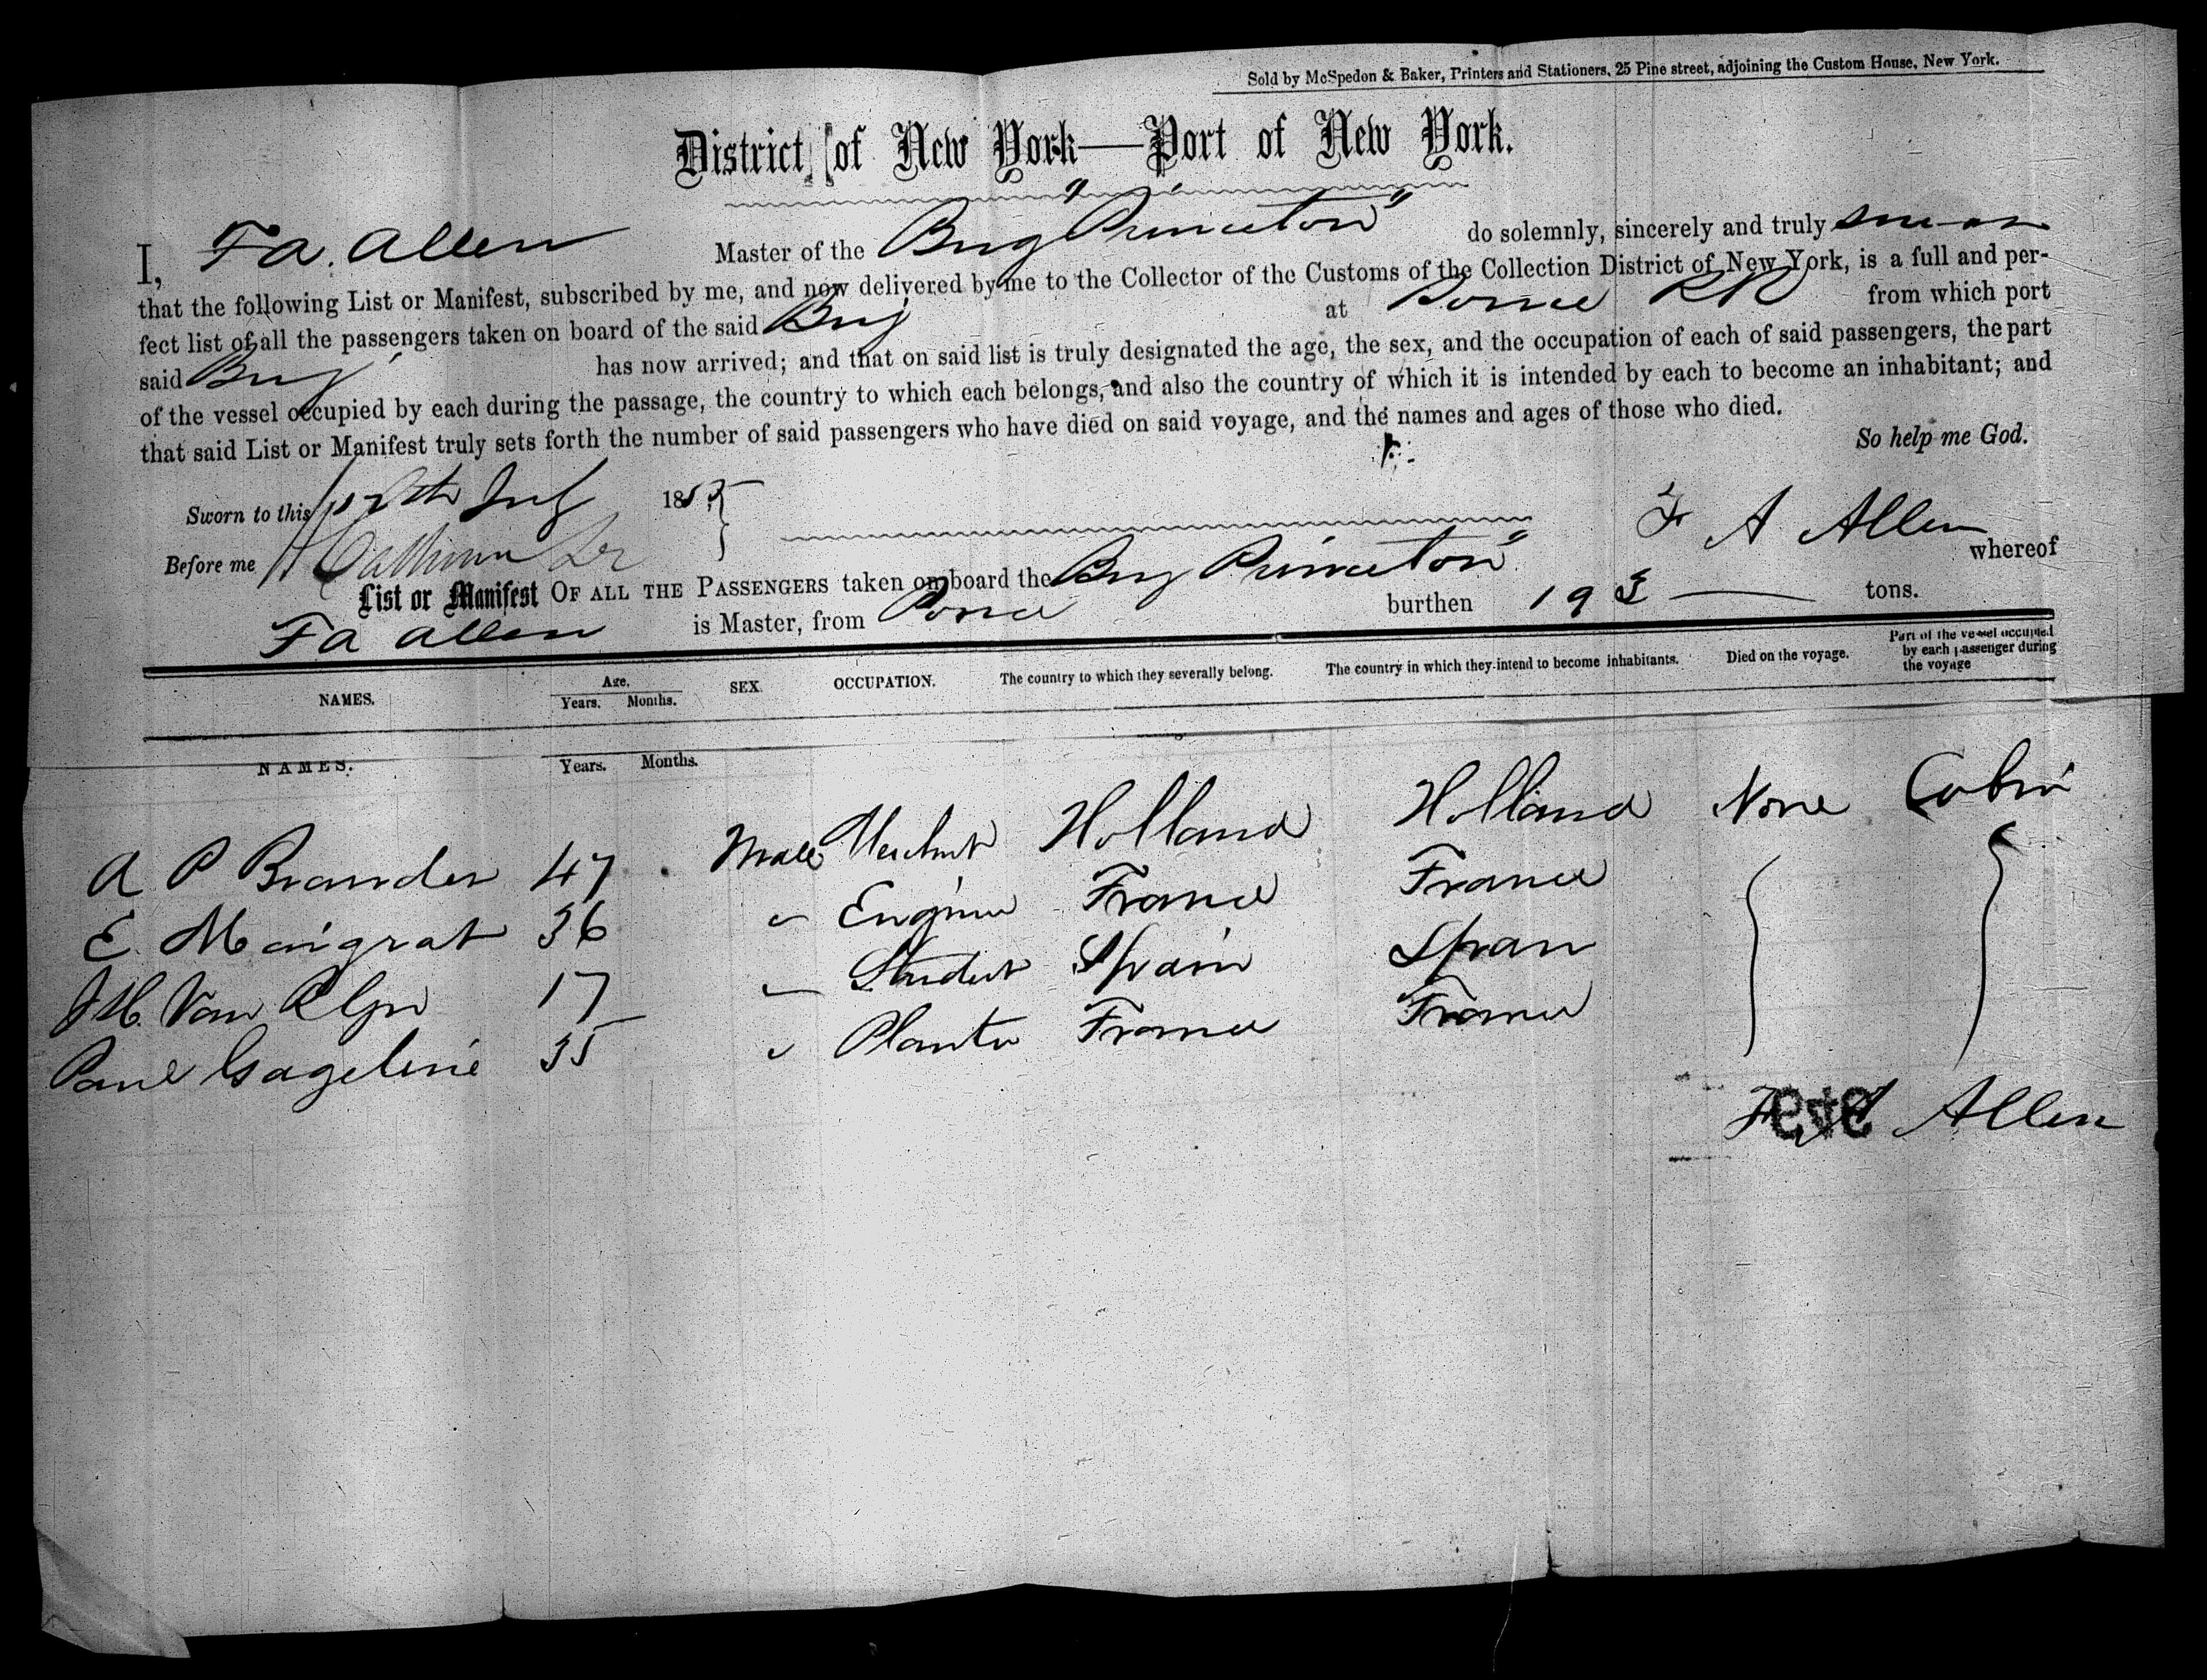 Sold by McSpedon & Baker, Printers and Stationers, 25 Pine street, adjoining the Custom House, New York.
District of New York—Port of New York.
I, F A. Allen Master of the Brig "Princeton" do solemnly, sincerely and truly swear
that the following List or Manifest, subscribed by me, and now delivered by me to the Collector of the Customs of the Collection District of New York, is a full and per-
fect list of all the passengers taken on board of the said Brig at Ponce PR from which port
said Brig has now arrived; and that on said list is truly designated the age, the sex, and the occupation of each of said passengers, the part
of the vessel occupied by each during the passage, the country to which each belongs, and also the country of which it is intended by each to become an inhabitant; and
that said List or Manifest truly sets forth the number of said passengers who have died on said voyage, and the names and ages of those who died.
So help me God.
Sworn to this July 185
F A Allen
Before me
List or Manifest OF ALL THE PASSENGERS taken on board the Brig Princeton" whereof
F A Allen is Master, from Ponce burthen 193 tons.
NAMES. Age. Years. Months. SEX. OCCUPATION. The country to which they severally belong. The country in which they intend to become inhabitants. Died on the voyage. Part of the vessel occupied by each passenger during the voyage
NAMES. Years. Months.
A P Brander 47 Male Merchnt Holland Holland None Cabin
E. Maigrat 36 " Engineer France France
J H. Van Rlyn 17 " Student Spain Spain
Paul Gageline 35 " Planter France France
F A Allen